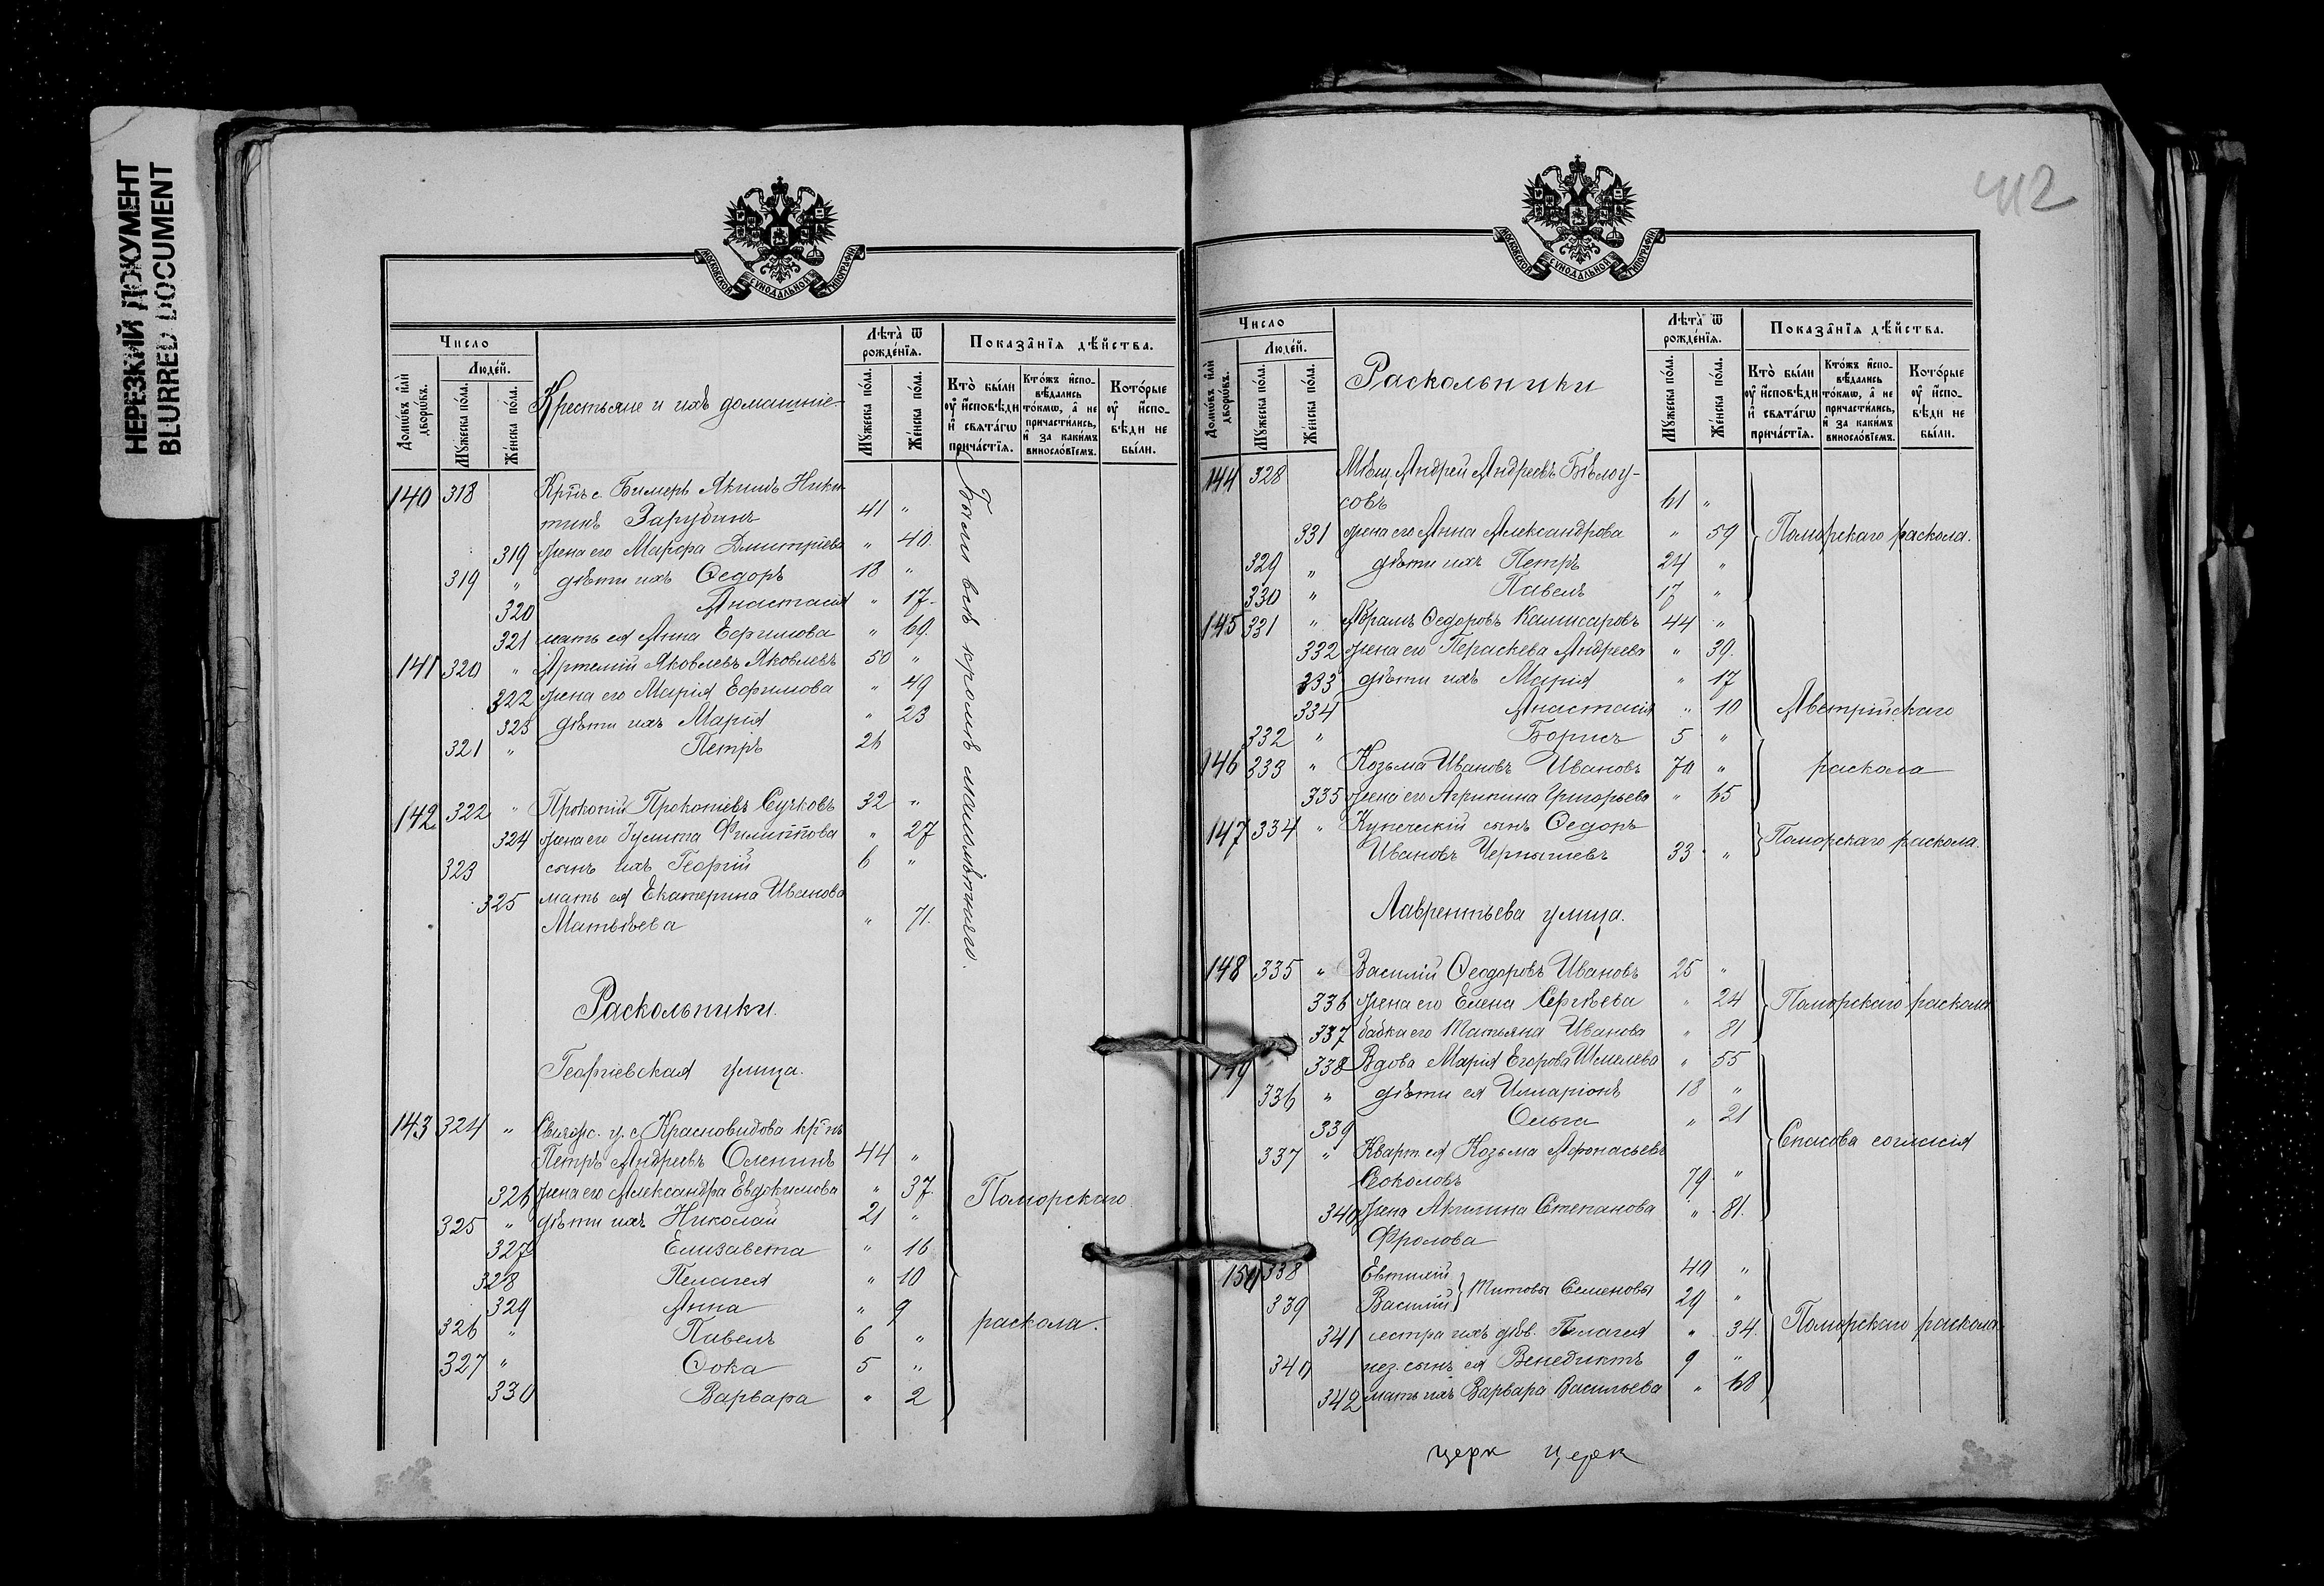 НЕРЕЗКИЙ ДОКУМЕНТ
BLURRED DOCUMENT
МОСКОВСКОЙ СѴНОДАЛЬНОЙ ТИПОГРАФІИ
Число
Людей.
Домѡвъ или дворѡвъ.
Мужеска пола.
Женска пола.
Крестьяне и ихъ домашніе.
Лѣта ѿ рожденїя.
Мужеска пола.
Женска пола.
Показанїя дѣйства.
Кто были оу исповѣди и святагω причастїя.
Ктожъ исповѣдались токмω, а не причастились, и за какимъ винословїемъ.
Которые оу исповѣди не были.
140 318 Крн̃ъ с. Бимеръ Якимъ Ники-
тинъ Зарубинъ 41 "
319 жена его Марфа Дмитріева " 40.
319 " дѣти ихъ Ѳедоръ 18 "
320 Анастасія " 17.
321 мать ея Анна Ефимова " 69.
141 320 " Артемій Яковлевъ Яковлевъ 50 "
322 жена его Марія Ефимова " 49
323 дѣти ихъ Марія " 23
321 " Петръ 26
142 322 " Прокопій Прокопіевъ Сучковъ 32 "
324 жена его Іулита Филиппова " 27
323 сынъ ихъ Георгій 6 "
325 мать ея Екатерина Иванова
Матвѣева " 71.
Были всѣ кромѣ малолѣтняго.
Раскольники.
Георгіевская улица.
143 324 " Свіяжс. у. с. Красновидова крн̃ъ
Петръ Андреевъ Оленинъ 44 "
326 жена его Александра Евдокимова " 37.
325 " дѣти ихъ Николай 21 "
327 Елизавета " 16
328 Пелагея " 10
329 Анна " 9
326 " Павелъ 6 "
327 " Ѳока 5 "
330 Варвара " 2
Поморскаго
раскола.
412
МОСКОВСКОЙ СѴНОДАЛЬНОЙ ТИПОГРАФІИ
Число
Людей.
Домѡвъ или дворѡвъ.
Мужеска пола.
Женска пола.
Раскольники
Лѣта ѿ рожденїя.
Мужеска пола.
Женска пола.
Показанїя дѣйства.
Кто были оу исповѣди и святагω причастїя.
Ктожъ исповѣдались токмω, а не причастились, и за какимъ винословїемъ.
Которые оу исповѣди не были.
144 328 Мѣщ. Андрей Андреевъ Бѣлоу-
совъ 61 "
331 жена его Анна Александрова " 59 Поморскаго раскола.
329 " дѣти ихъ Петръ 24 "
330 " Павелъ 17 "
145 331 " Абрамъ Ѳедоровъ Камисаровъ 44 "
332 жена его Пераскева Андреева " 39.
333 дѣти ихъ Марія " 17
334 Анастасія " 10 Австрійскаго
332 " Борисъ 5 "
146 333 " Козьма Ивановъ Ивановъ 70 " раскола
335 жена его Агрипина Григорьева " 65
147 334 " Купеческій сынъ Ѳедоръ
Ивановъ Чернышевъ 33 " Поморскаго раскола.
Лаврентьева улица.
148 335 " Василій Ѳеодоровъ Ивановъ 25 "
336 жена его Елена Сергѣева " 24 Поморскаго раскола
337 бабка его Татьяна Иванова " 81
149 338 Вдова Марія Егорова Шмелева " 55
336 " дѣти ея Илларіонъ 18 "
339 Ольга " 21
337 " Кварт. ея Козьма Афонасьевъ Спасова согласія
Соколовъ 79 "
340 жена Акилина Степанова " 81.
Фролова
150 338 Евтихій 40 "
339 Василій } Титовы Семеновы 29 "
341 сестра ихъ дѣв. Пелагея " 34. Поморскаго раскола.
340 нез. сынъ ея Венедиктъ 9 "
342 мать ихъ Варвара Васильева " 68
церк церк